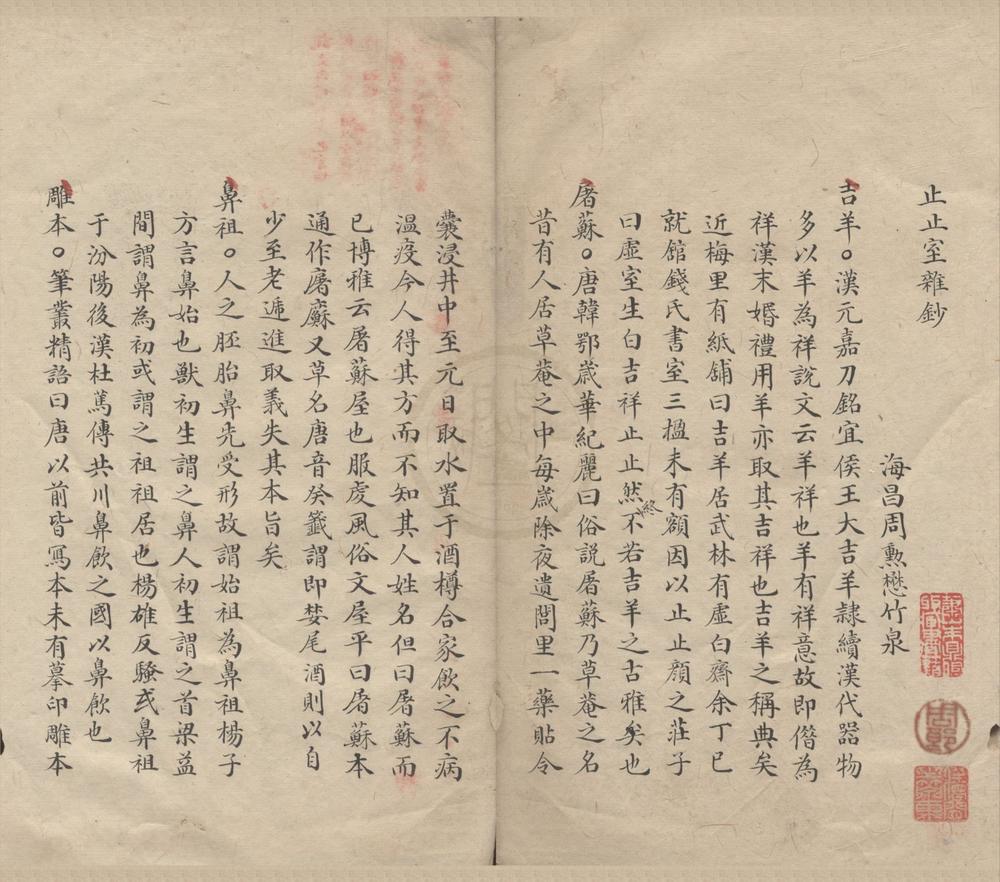 止止室雜鈔
海昌周勳懋竹泉
吉羊。漢元嘉刀銘宜侯王大吉羊隸續漢代器物
多以羊為祥說文云羊祥也羊有祥意故即偺為
祥漢末婚禮用羊亦取其吉祥也吉羊之稱典矣
近梅里有紙舖曰吉羊居武林有虛白齋余丁巳
就館錢氏書室三楹未有額因以止止顏之莊子
曰虛室生白吉祥止止然終不若吉羊之古雅矣也
屠蘇。唐韓鄂歲華紀麗曰俗説屠蘇乃草菴之名
昔有人居草菴之中每歲除夜遺閭里一藥貼令
囊浸井中至元日取水置于酒樽合家飲之不病
溫疫今人得其方而不知其人姓名但曰屠蘇而
已博雅云屠蘇屋也服虔風俗文屋平曰屠蘇本
通作廜㢝又草名唐音癸籤謂即婪尾酒則以自
少至老逓進取義失其本旨矣
鼻祖。人之胚胎鼻先受形故謂始祖為鼻祖楊子
方言鼻始也獸初生謂之鼻人初生謂之首梁益
間謂鼻為初或謂之祖祖居也楊雄反騷或鼻祖
于汾陽後漢杜篤傳共川鼻飲之國以鼻飲也
雕本。筆叢精語曰唐以前皆寫本未有摹印雕本